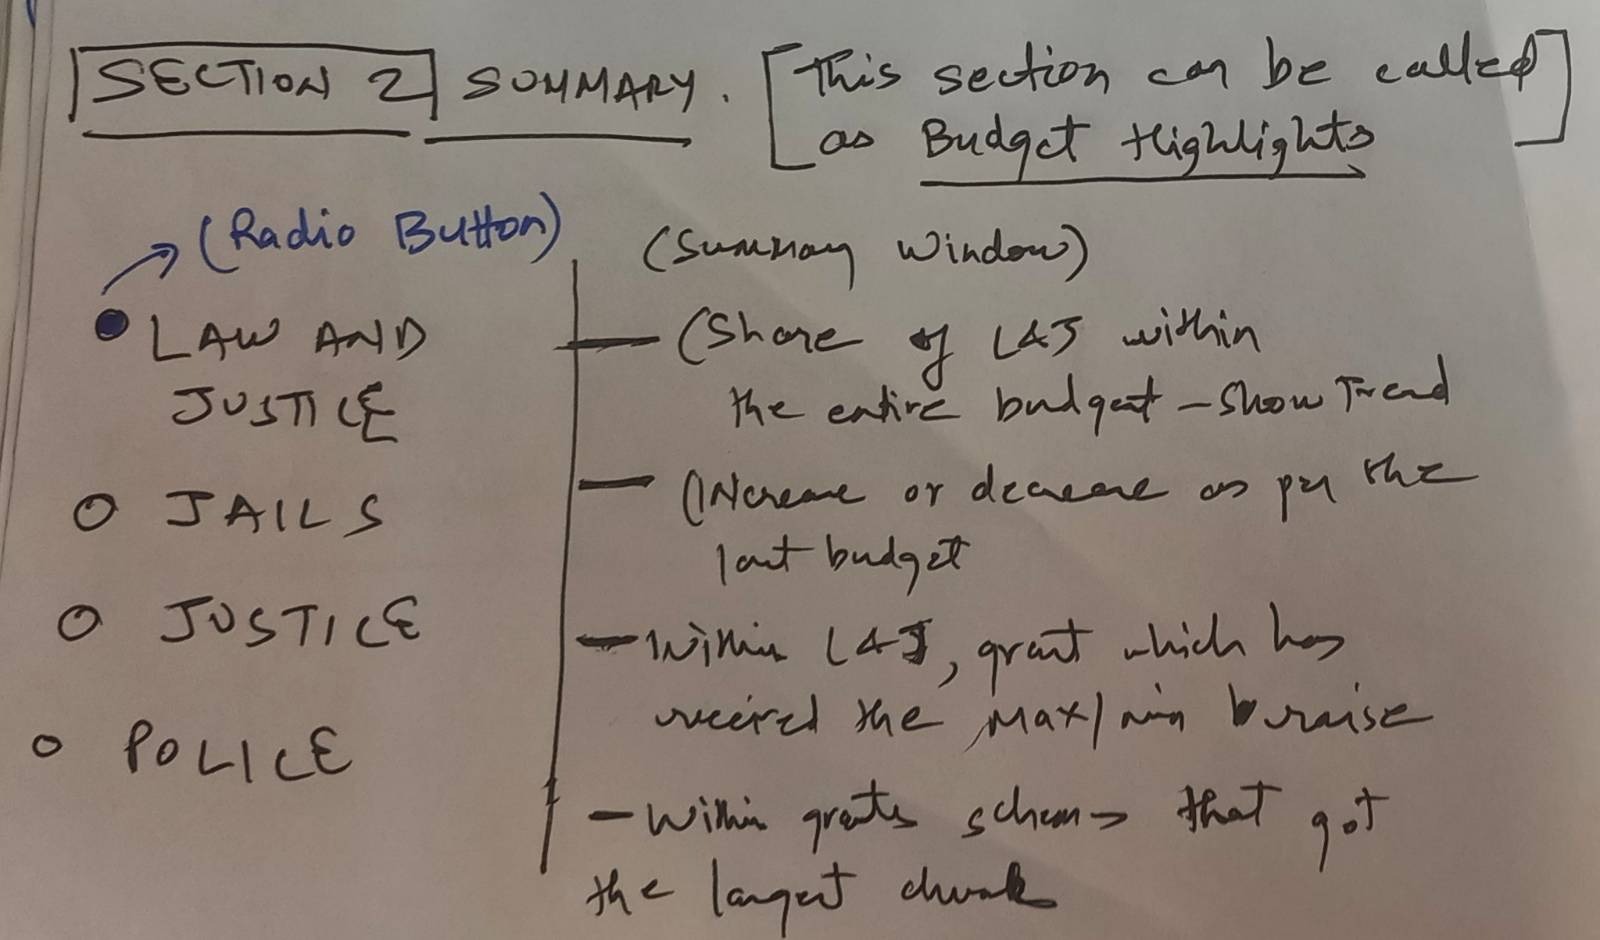 SECTION 2 SUMMARY. [This section can be called
as Budget Highlights]
(Radio Button)
LAW AND
JUSTICE
JAILS
JUSTICE
POLICE
(Summary Window)
- (Share of L&J within
the entire budget - Show Trend
- (Increase or decrease as per the
last budget
- Within L&J, grant which has
received the Max/min raise
- Within grants schemes that got
the largest chunk